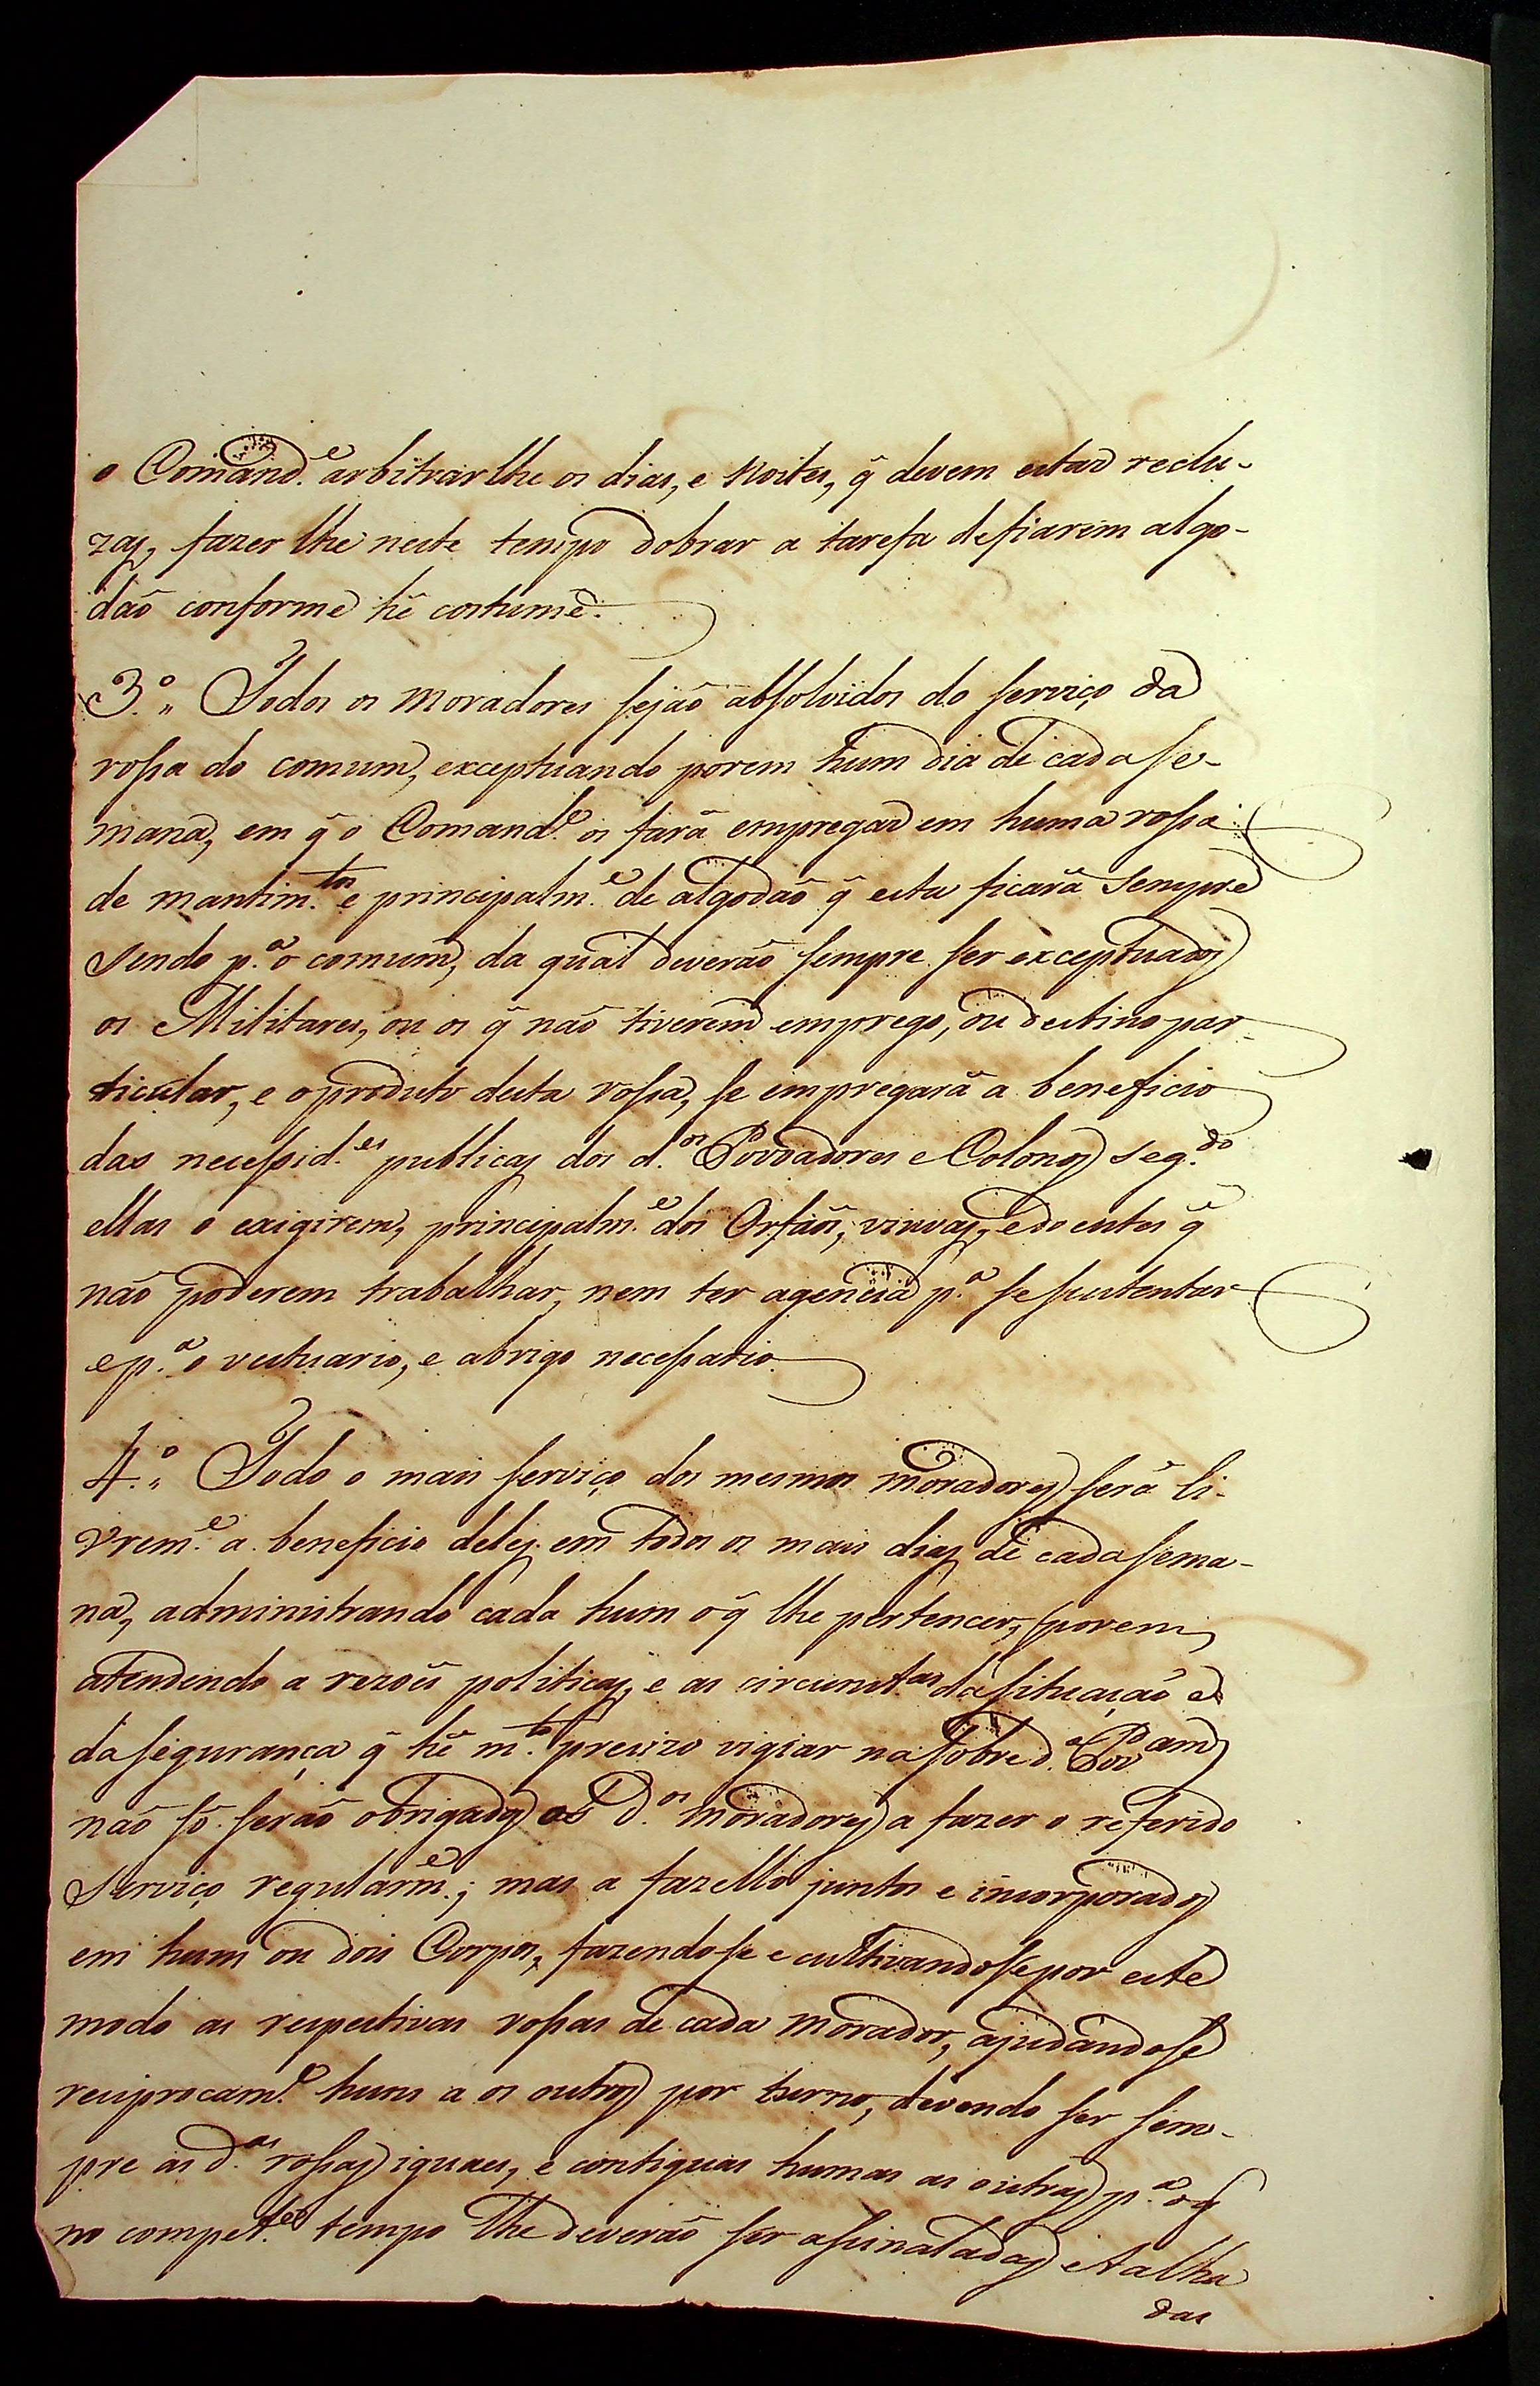 o Comand.e arbitrarlhe os dias, e noites, q̃ devem estar reclu-
zas, fazer lhe neste tempo dobrar a tarefa defiarem algo-
dão conforme hê costume.
3.º „ Todos os moradores sejão absolvidos do serviço da
rossa do comum, exceptuando porem hum dia de cada se-
mana, em q̃ o Comand.e os fará empregar em huma rossa
de mantim.tos e principalm.e de algodão q̃ esta ficará sempre
sendo p.a o comum, da qual deverão sempre ser exceptuados
os Militares, ou os q̃ não tiverem emprego, ou destino par-
ticular, e o produto desta rossa, se empregará a beneficio
das necessid.es publicas dos d.os Povoadores e Colonos seg.do
ellas o exigirem, principalm.e dos Orfãos, viuvas, e doentes q̃
não poderem trabalhar, nem ter agencia p.a se sustentar
e p.a o vestuario, e abrigo necessario.
4.º „ Todo o mais serviço dos mesmos moradores será li-
vrem.e a beneficio deles em todos os mais dias de cada sema-
na, administrando cada hum o q̃ lhe pertencer, porem,
atendendo a rezoẽs politicas, e as circunst.as da situação e
da segurança q̃ hê m.to precizo vigiar na sobred.a Pov.am
não só serão obrigados os d.os moradores a fazer o referido
serviço regularm.e; mas a fazello juntos e incorporados
em hum ou dois Corpos, fazendo-se e cultivandose por este
modo as respectivas rossas de cada morador, ajudandose
reciprocam.e huns a os outros por turno, devendo ser sem-
pre as d.as rossas iguaes, e contiguas humas as outras p.a o q̃
no compet.e tempo lhe deverão ser assinaladas e talha
das